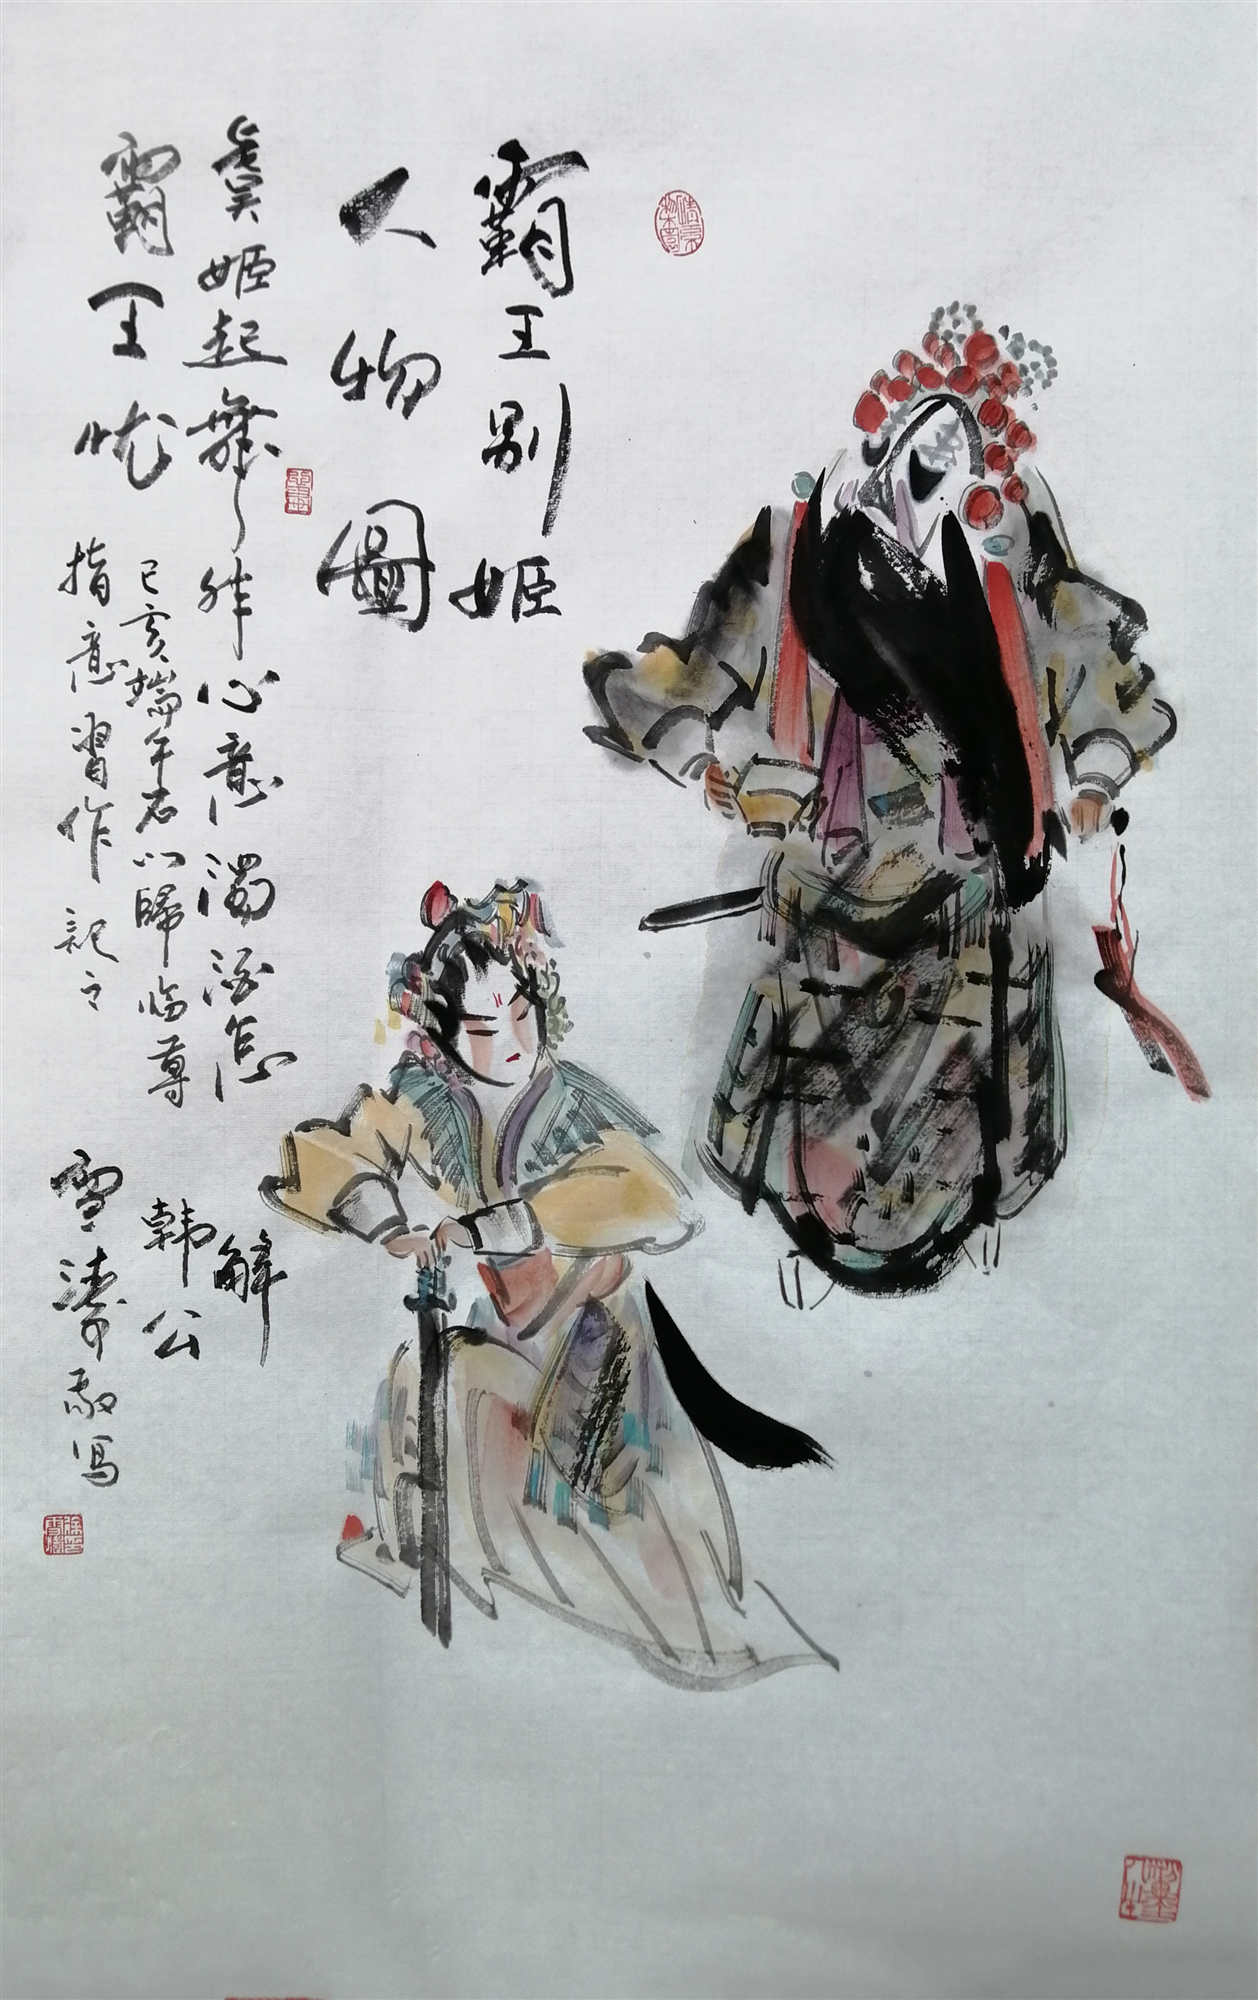 霸王别姬
人物圖
虞姬起舞伴心意濁酒怎解
霸王忧
己亥端午君以歸临尊韩公
指意習作記之
雪濤敬写